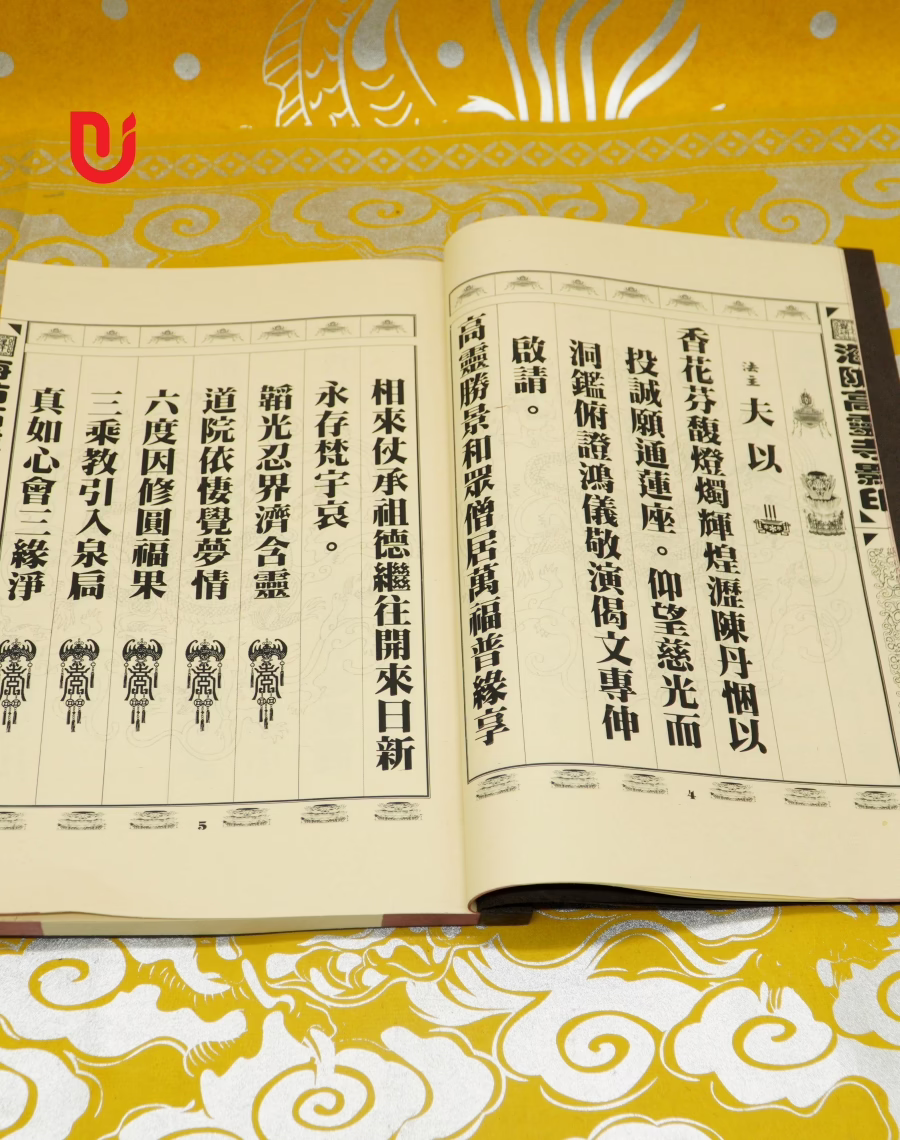 海陬高靈寺影印
法主 夫以
香花芬馥燈燭輝煌瀝陳丹悃以
投誠願通蓮座。仰望慈光而
洞鑑俯證鴻儀敬演偈文專伸
啟請。
高靈勝景和眾僧居萬福普緣享
4
相來仗承祖德繼往開來日新
永存梵宇哀。
韜光忍界濟含靈
道院依悽覺夢情
六度因修圓福果
三乘教引入泉局
真如心會三緣淨
5